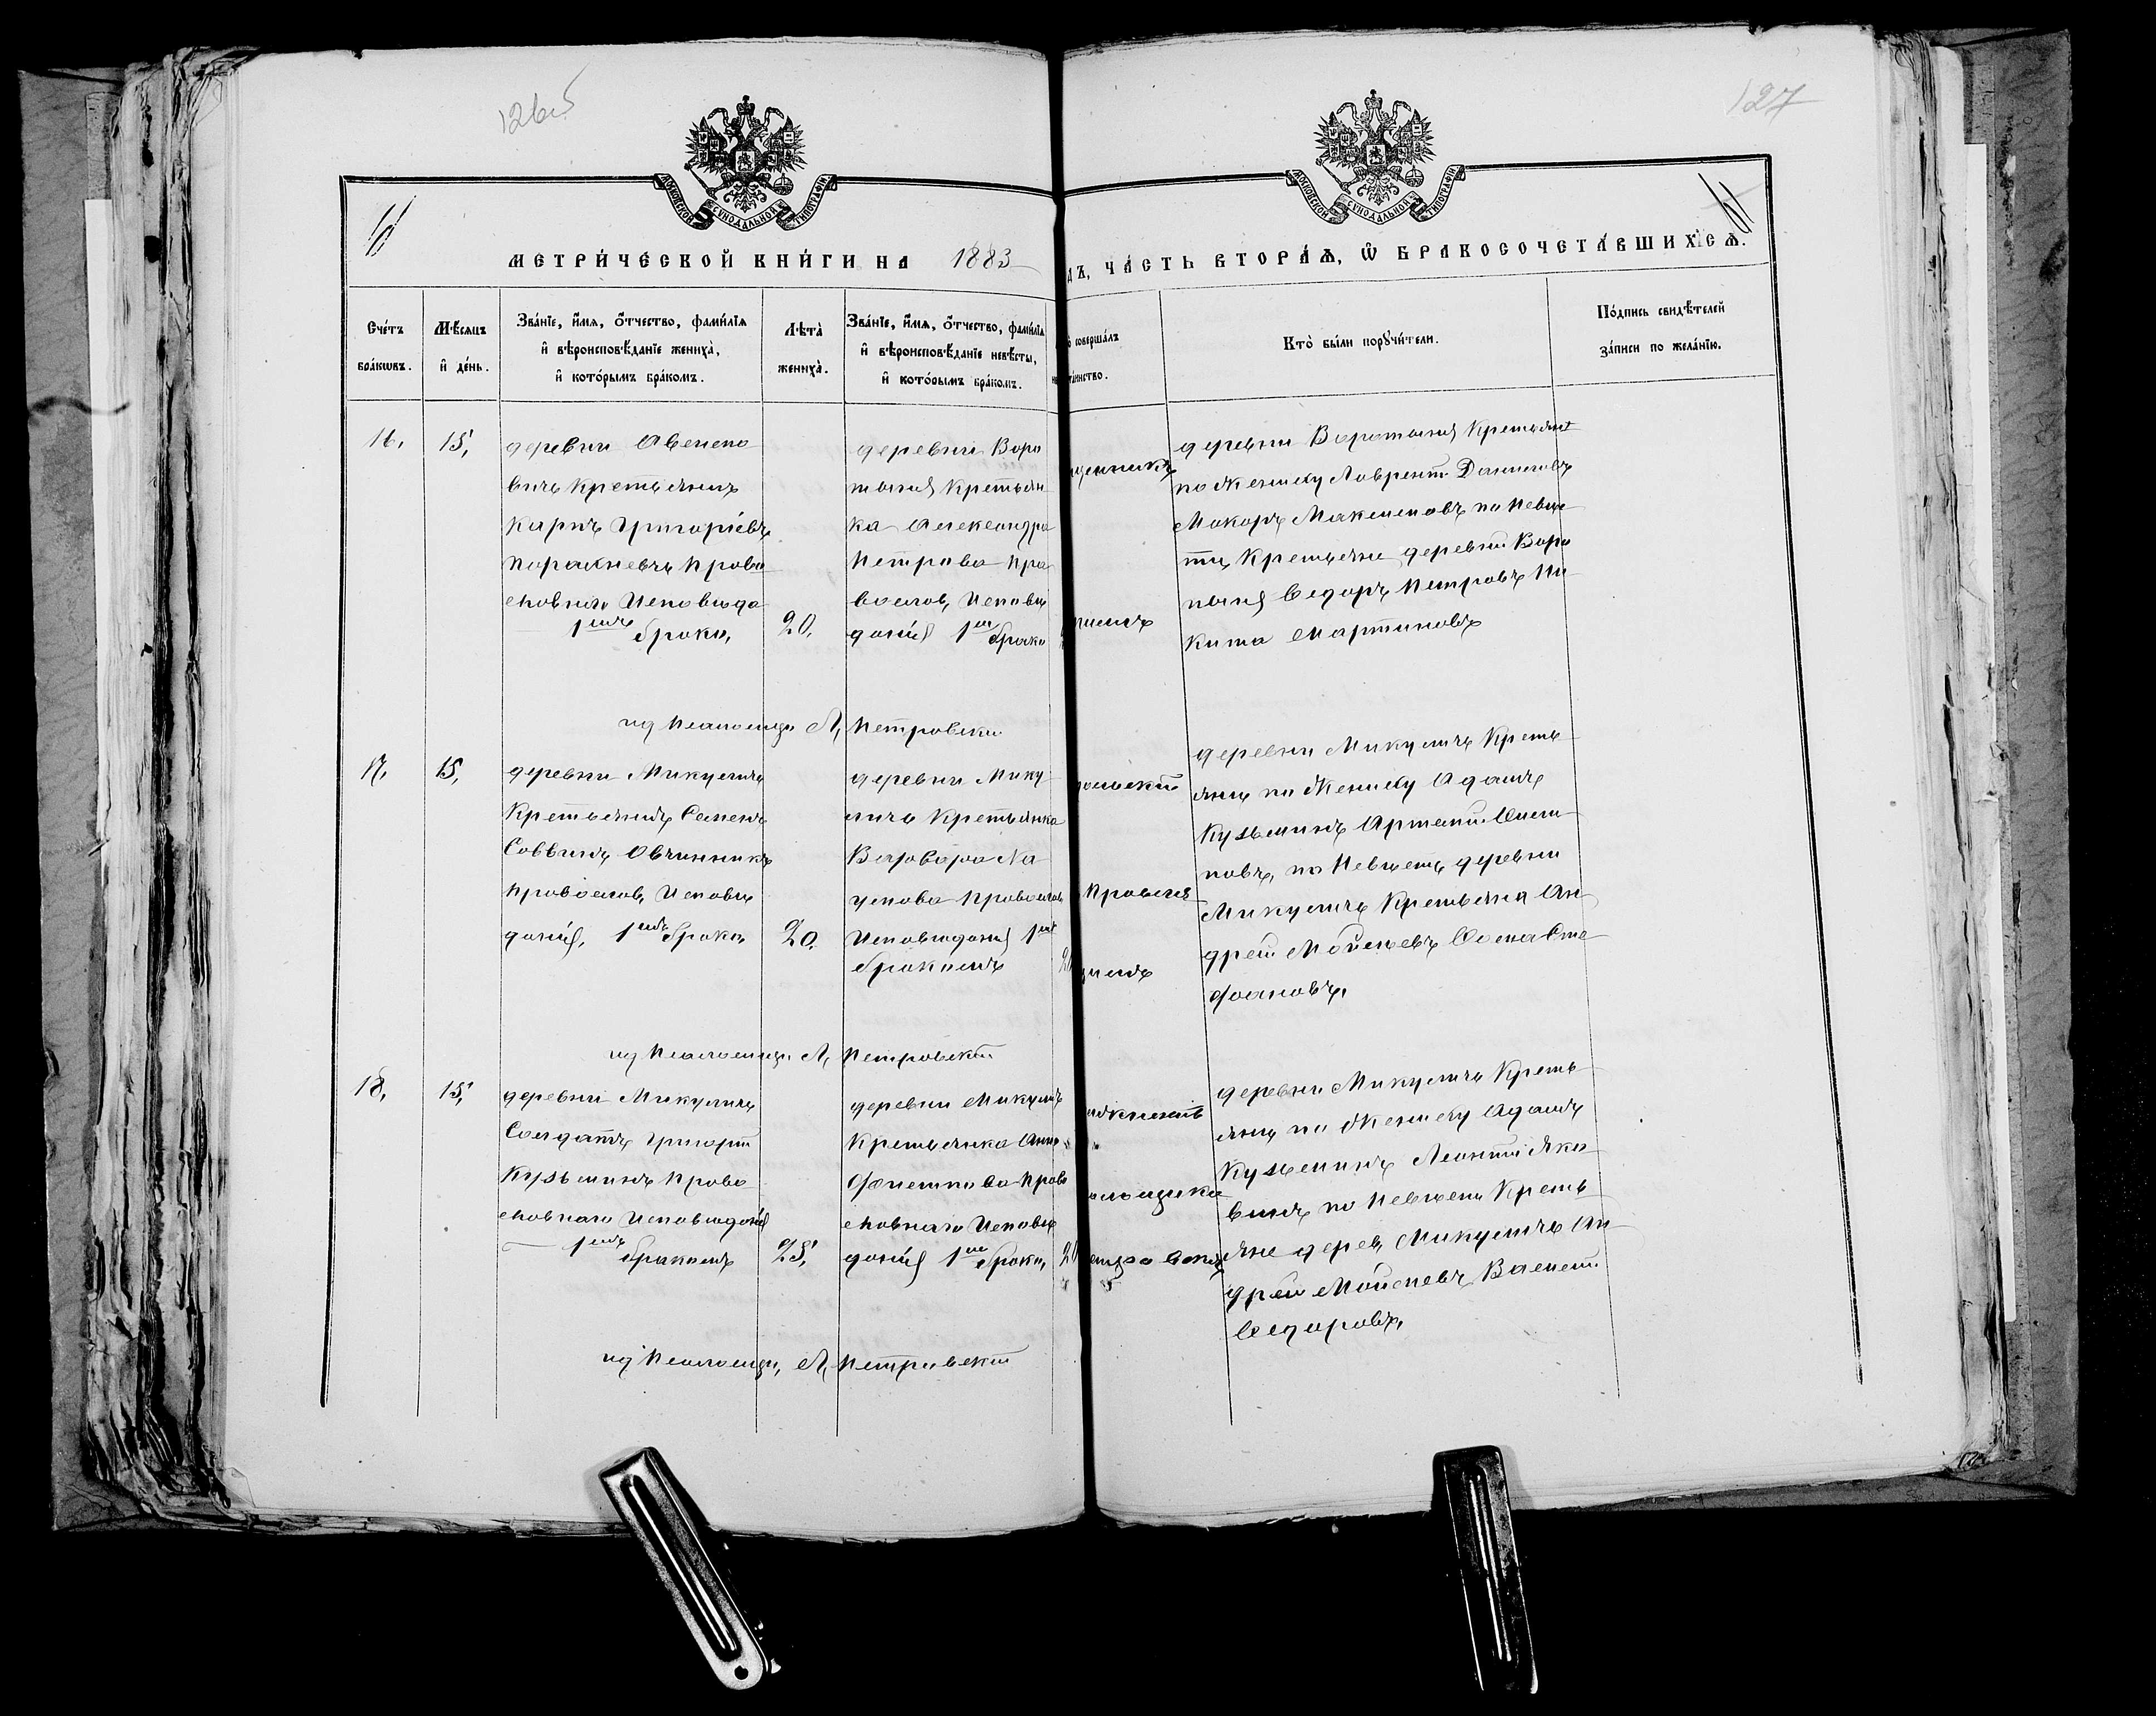 126об
127
МОСКОВСКОЙ СѴНОДАЛЬНОЙ ТИПОГРАФІИ
МОСКОВСКОЙ СѴНОДАЛЬНОЙ ТИПОГРАФІИ
МЕТРИ́ЧЕСКОЙ КНИ́ГИ НА 1883
ДЪ, ЧА́СТЬ ВТОРА́Ѧ, Ѡ БРАКОСОЧЕТА́ВШИХСѦ.
Сче́тъ бра́кѡвъ.
Мѣ́сѧцъ и҆ де́нь.
Зва́нїе, и҆́мѧ, ѻ҆́тчество, фамилїѧ
и҆ вѣроисповѣ́данїе жениха̀,
и҆ кото́рымъ бра́комъ.
Лѣта̀ жениха̀.
Зва́нїе, и҆́мѧ, ѻ҆́тчество, фамилїѧ
и҆ вѣроисповѣ́данїе невѣ́сты,
и҆ кото́рымъ бра́комъ.
совершалъ
таинство.
Кто̀ бы́ли порꙋчи́тели.
По́дпись свидѣ́телей
за́писи по жела́нїю.
16, 15,
деревни
вичъ Крестьянинъ
Карпъ Григоріевъ
Право
славнаго Исповѣда
1мъ браком,
20,
деревни Воро
тыня Крестьян
ка Александра
Петрова Пра
вослав, Исповѣ
данія 1м брако
деревни Воротыня Крестьяне
по Жениху Лаврентій Даниловъ
Макаръ Максимовъ по Невѣс
ты Крестьяне деревни Воро
тыня Ѳедоръ Петровъ Ни
кита Мартиновъ
ид Псаломщи. Л, Петровски
17, 15,
деревни Микуличъ
Крестьянинъ Семенъ
Саввинъ Овчинникъ
Православ, Исповѣ
данія, 1мъ браком,
20,
деревни Мику
личъ Крестьянка
Варвара На
умова Православ
Исповѣданія 1мъ
бракомъ
деревни Микуличъ Кресть
яны по Жениху Адамъ
Кузьминъ Артемій Осип
повъ, по Невѣсты деревни
Микуличъ Крестьяня Ан
дрей Мойсеевъ Ѳома Сте
фановъ,
ид Псаломщи. Л, Петровскій
18, 15,
деревни Микуличъ
Солдатъ Григорій
Кузьминъ Право
славнаго Исповѣданія
1мъ бракомъ
25,
деревни Микуличъ
Крестьянка Анна
Филиппова Право
славнаго Исповѣ
данія 1м браком,
деревни Микуличъ Кресть
яны по Жениху Адамъ
Кузьминъ Леонтій Яко
влевъ по Невѣсты Кресть
яне дерев, Микуличъ Ан
дрей Мойсеевъ Василій
Ѳедоровъ,
ид Псаломщи, Л, Петровскій